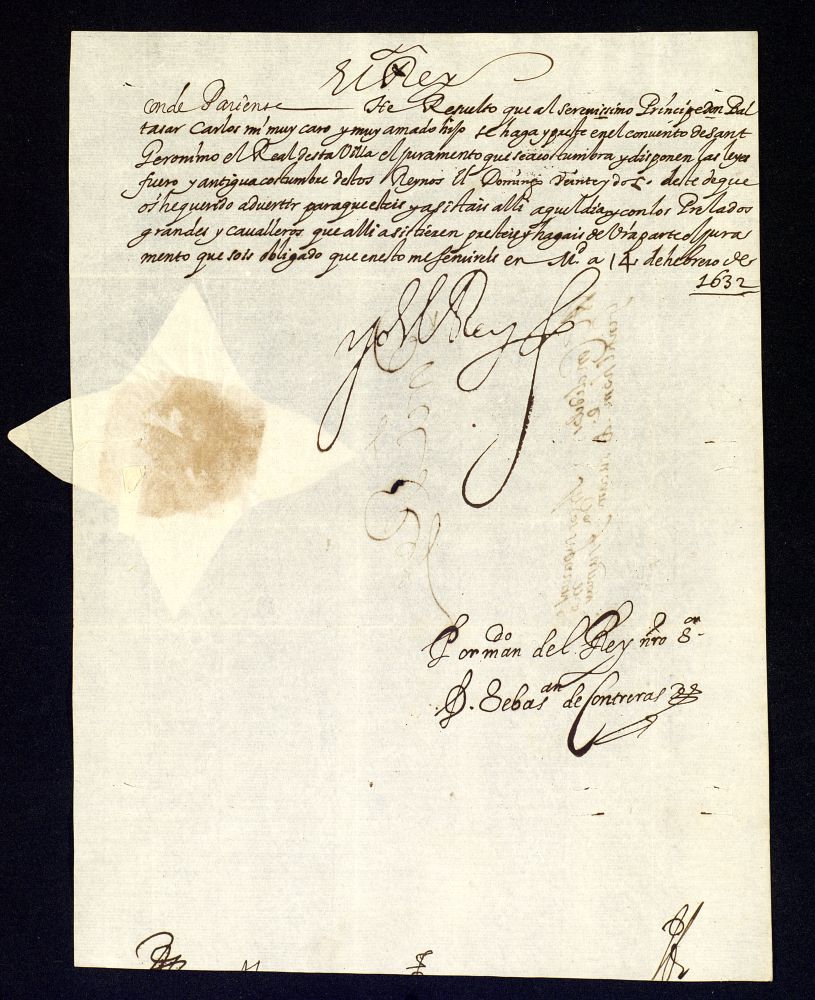 El Rey
Conde Pariente He Resuelto que al serenissimo Príncipe don Bal
tasar Carlos mi muy caro y muy amado hijo se haga y preste en el convento de Sant
Geronimo el Real desta Villa el juramento que se acostumbra y disponen las leyes
fuero y antigua costumbre destos Reynos El Domingo Veinte y dos deste de que
os he querido advertir para que esteis y asistais alli aquel dia y con los Prelados
grandes y cavalleros que alli asistieren presteis y hagais de Vra parte el jura
mento que sois obligado que en esto me seruireis en Md a 14 de hebrero de
1632
yo El Rey
Por mando del Rey nro Sor
D. Sebasan de Contreras